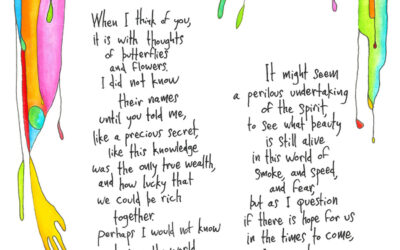 When I think of you,
it is with thoughts
of butterflies
and flowers.
I did not know
their names
until you told me,
like a precious secret,
like this knowledge
was the only true wealth,
and how lucky that
we could be rich
together.
perhaps I would not know
the world
It might seem
a perilous undertaking
of the spirit
to see what beauty
is still alive
in this world of
smoke, and speed,
and fear,
but as I question
if there is hope for us
in the times to come,